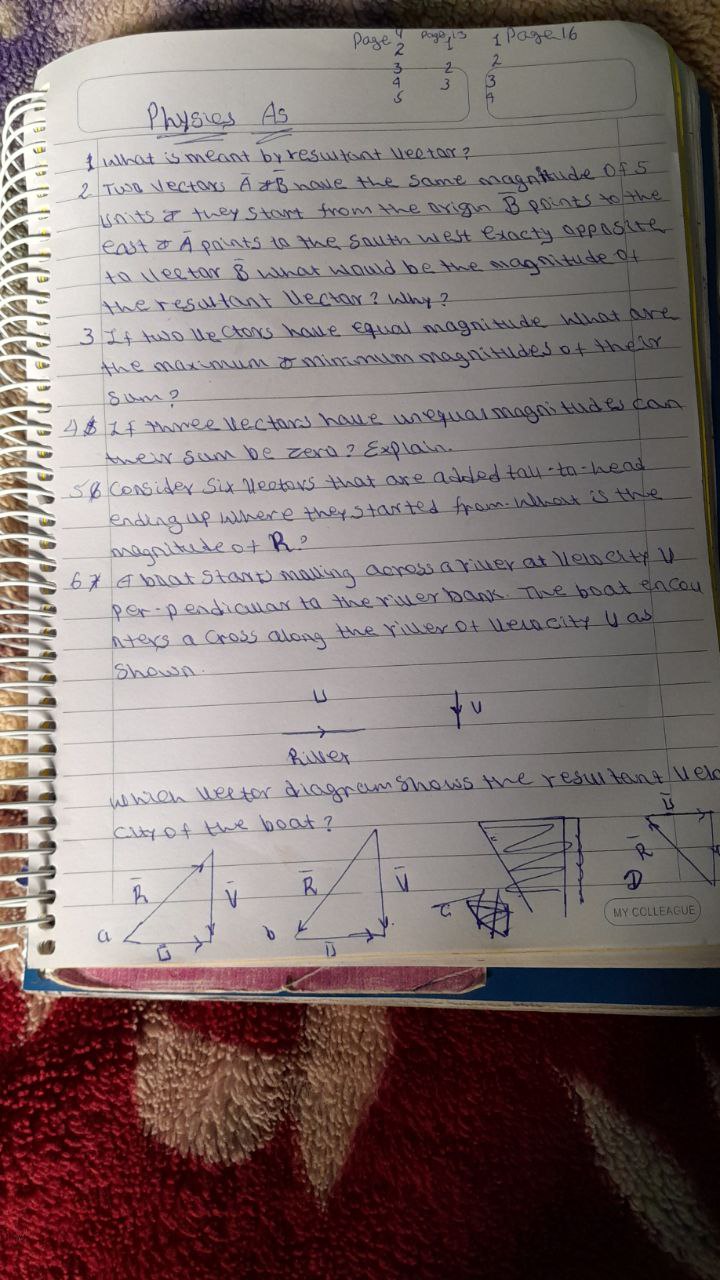 Page 4 Page 13 1 Page 16
2 1 2
3 2 3
4 3 4
5
Physics As
1 What is meant by resultant Vector?
2 Two Vectors A & B have the same magnitude of 5
units & they start from the origin B points to the
east & A points to the south west exacty opposite
to Vector B what would be the magnitude of
the resultant Vector? Why?
3 If two vectors have equal magnitude what are
the maximum & minimum magnitudes of their
Sum?
4 If three vectors have unequal magnitudes can
their sum be zero? Explain.
5 Consider six Vectors that are added tail-to-head
ending up where they started from. What is the
magnitude of R?
6 A boat starts moving across a river at velocity V
per-pendicular to the river bank. The boat encou
nters a cross along the river of velocity U as
Shown.
U V
River
which vector diagram shows the resultant velo
city of the boat?
R V R V U
R
a U b U c D
MY COLLEAGUE